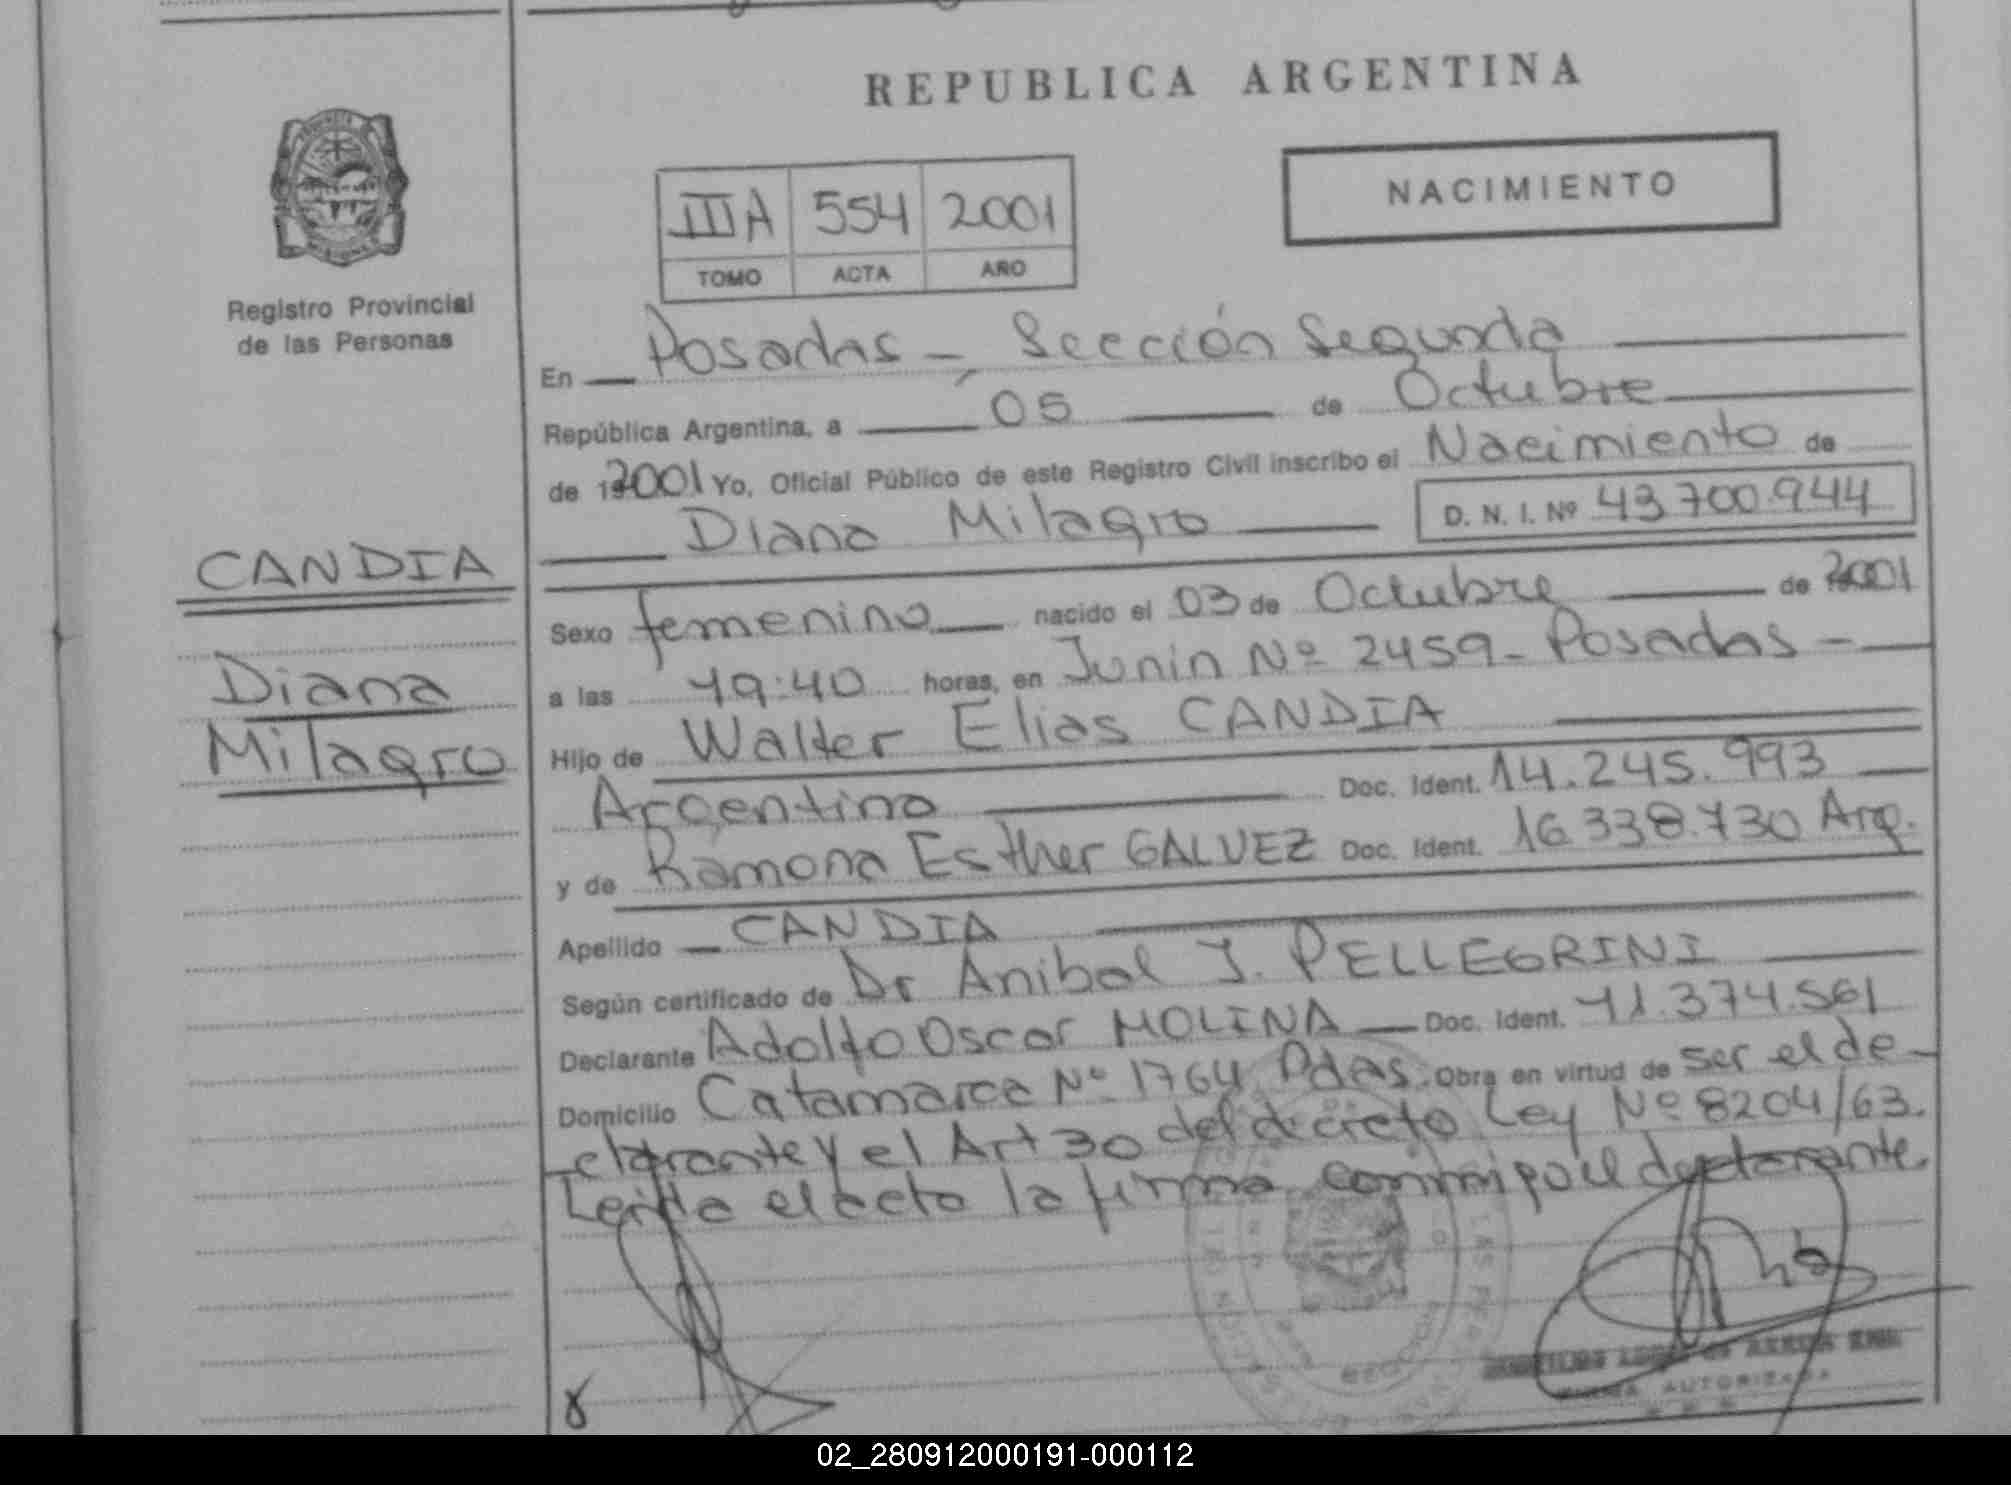 REPUBLICA ARGENTINA
NACIMIENTO
IIIA 554 2001
TOMO ACTA AÑO
Registro Provincial
de las Personas
En Posadas - Sección Segunda
República Argentina, a 05 de Octubre
de 192001 Yo, Oficial Público de este Registro Civil inscribo el Nacimiento de
Diana Milagro D. N. I. Nº 43.700.944
CANDIA
Diana
Milagro
Sexo femenino nacido el 03 de Octubre de 2001
a las 19:40 horas, en Junin Nº 2459 - Posadas -
Hijo de Walter Elias CANDIA
Argentino Doc. Ident. 14.245.993
y de Ramona Esther GALVEZ Doc. Ident. 16.338.730 Arg.
Apellido CANDIA
Según certificado de Dr Anibal J. PELLEGRINI
Declarante Adolfo Oscar MOLINA Doc. Ident. 11.374.561
Domicilio Catamarca Nº 1764 Pdas. Obra en virtud de ser el de-
clarante y el Art 30 del decreto Ley Nº 8204/63.
Leida el acta la firma conmigo el declarante
FIRMA AUTORIZADA
02_280912000191-000112